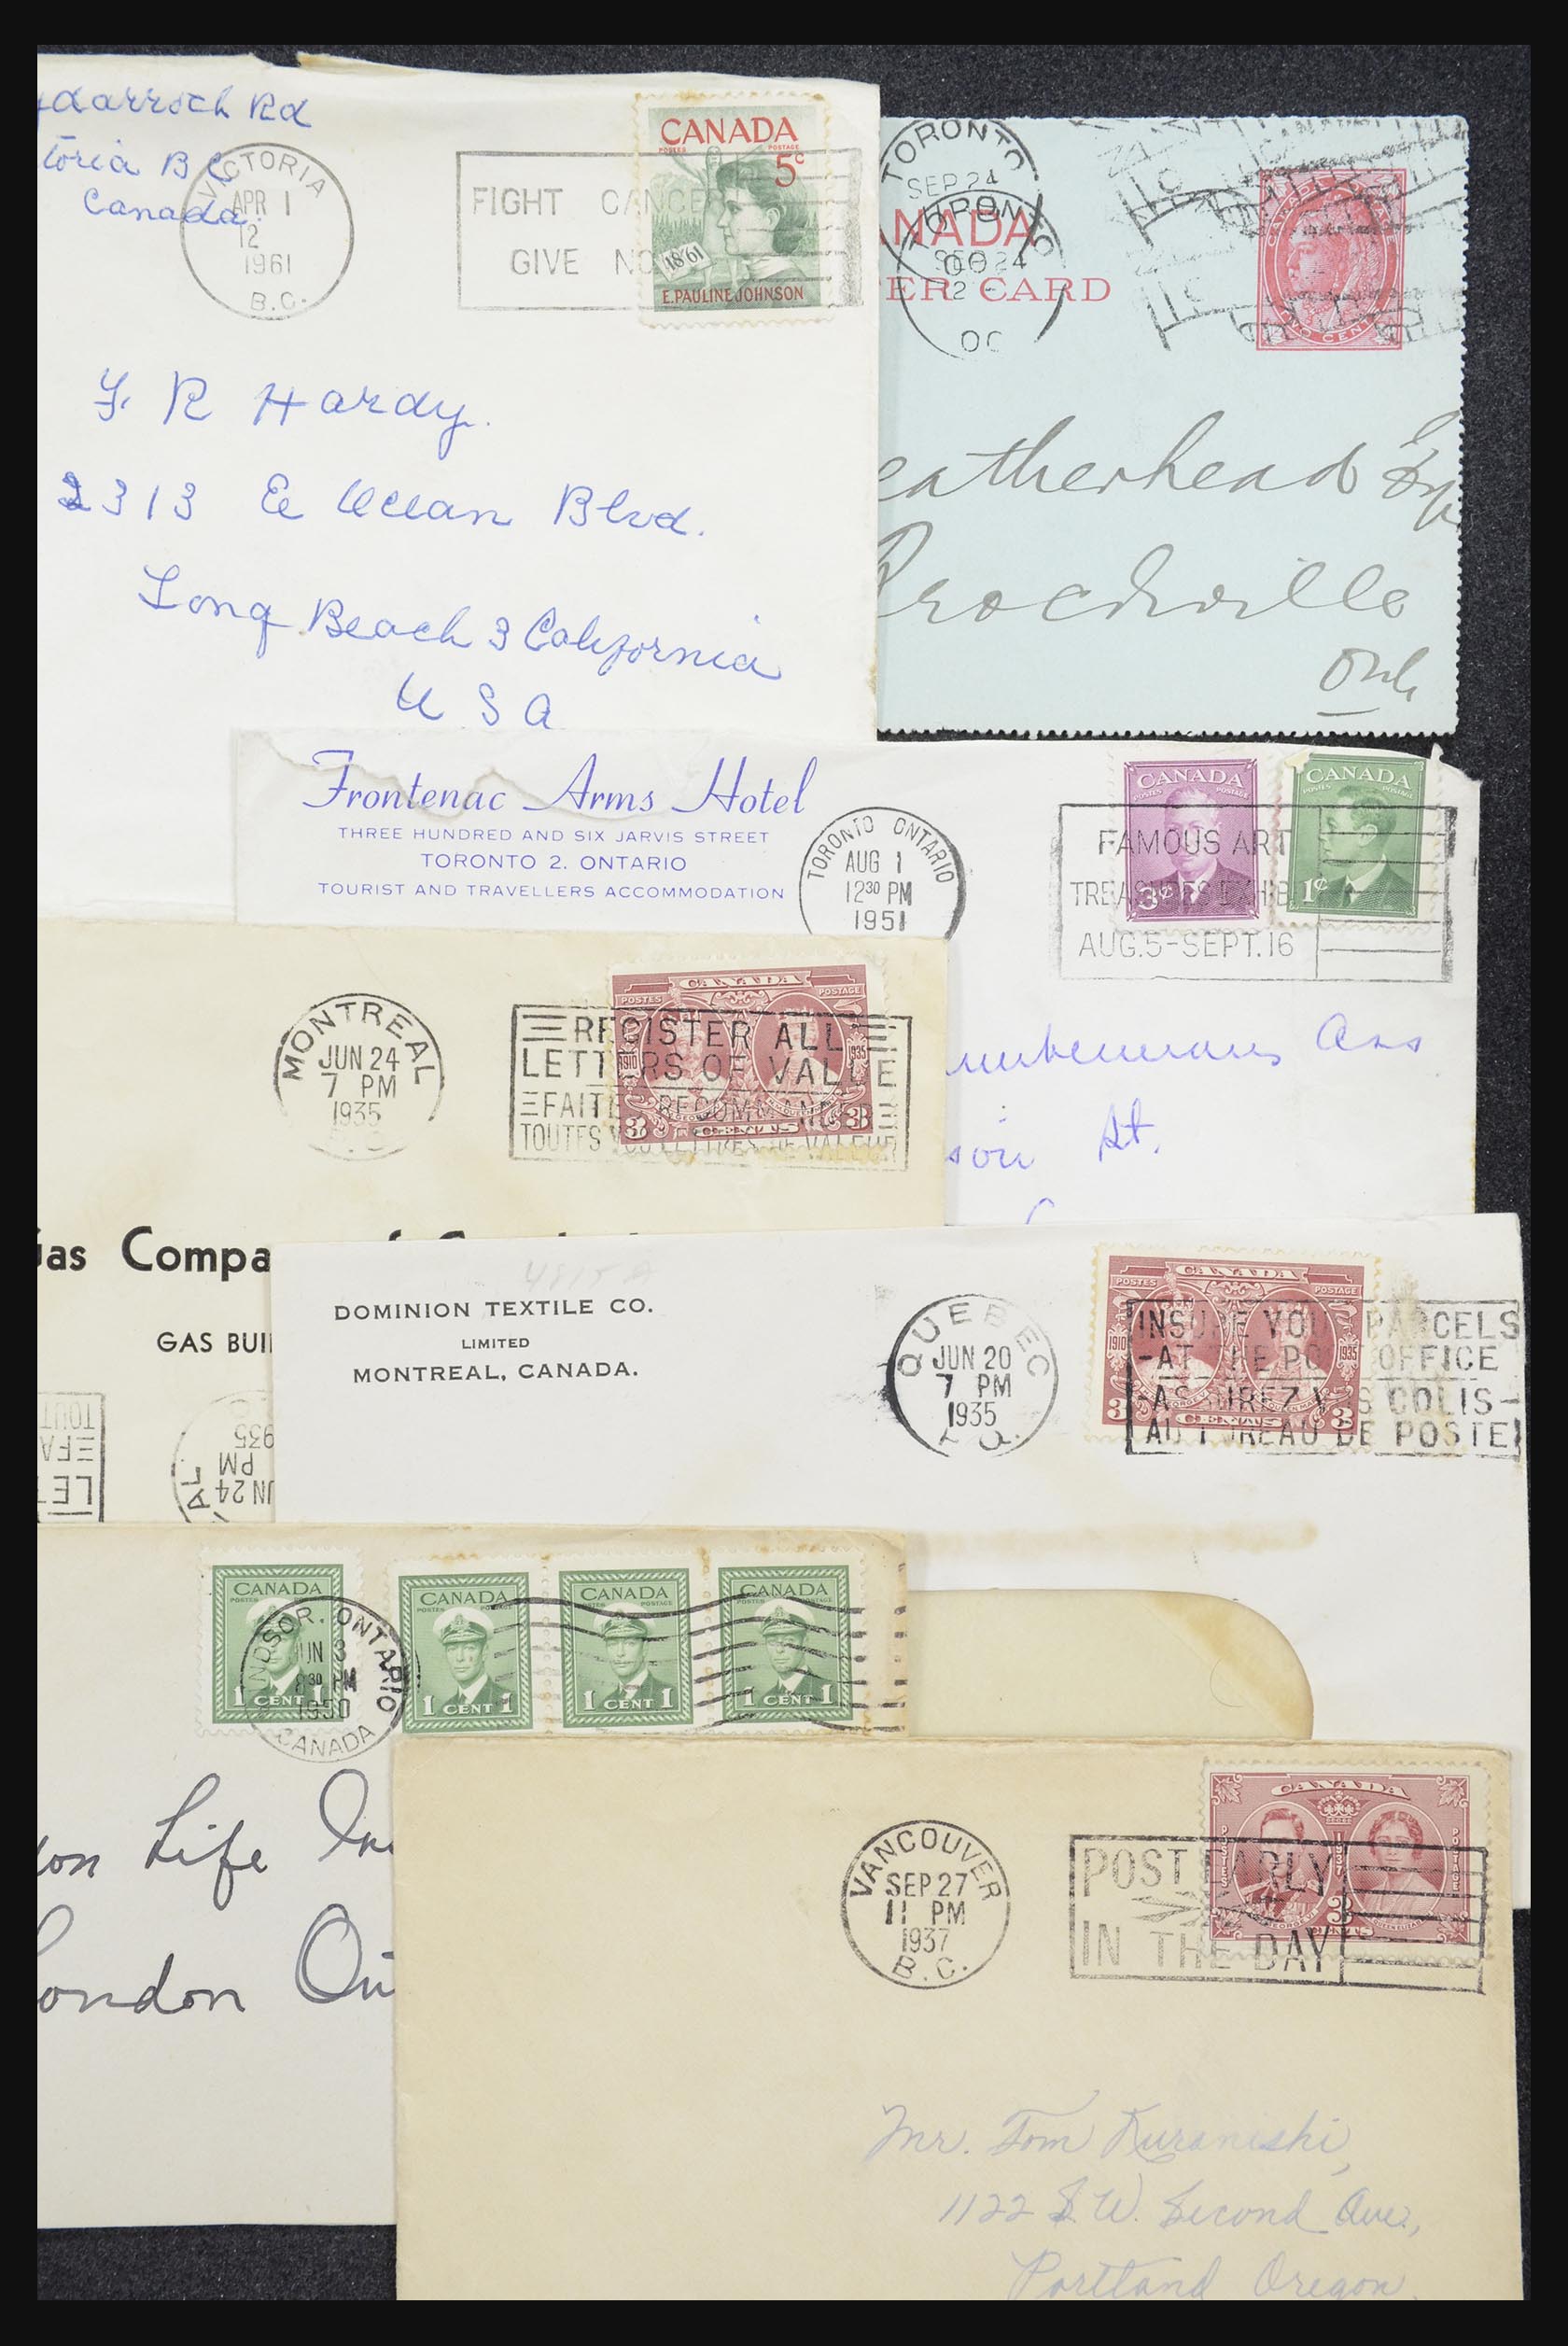 Rd
toria B C
Canada
VICTORIA
APR 1
12
1961
B.C.
FIGHT CANCE
GIVE NO
CANADA
POSTES POSTAGE
5c
1861
E. PAULINE JOHNSON
R Hardy.
2313 E Ocean Blvd.
Long Beach 3 California
U S A
TORONTO
SEP 24
TORONTO
SEP 24
OC
ANADA
ER CARD
TWO CENTS
eatherhead Esq
Brockville
Ont
Frontenac Arms Hotel
THREE HUNDRED AND SIX JARVIS STREET
TORONTO 2. ONTARIO
TOURIST AND TRAVELLERS ACCOMMODATION
TORONTO ONTARIO
AUG 1
12 30 PM
1951
CANADA
POSTES POSTAGE
3¢
CANADA
POSTES POSTAGE
1¢
FAMOUS ART
TREASURES EXHIB
AUG. 5-SEPT. 16
Ass
son St.
MONTREAL
JUN 24
7 PM
1935
CANADA
POSTES POSTAGE
1910 1935
3 CENTS 3
REGISTER ALL
LETTERS OF VALUE
FAITES RECOMMANDER
TOUTES VOS LETTRES DE VALEUR
Gas Compa
GAS BUI
TOUT
FA
LET
1935
PM
UN 24
AL
4815 A
DOMINION TEXTILE CO.
LIMITED
MONTREAL, CANADA.
QUEBEC
JUN 20
7 PM
1935
P.Q.
CANADA
POSTES POSTAGE
1910 1935
3 CENTS 3
INSURE YOUR PARCELS
-AT THE POST OFFICE
-ASSUREZ VOS COLIS-
AU BUREAU DE POSTE
CANADA
POSTES POSTAGE
1 CENT 1
CANADA
POSTES POSTAGE
1 CENT 1
CANADA
POSTES POSTAGE
1 CENT 1
CANADA
POSTES POSTAGE
1 CENT 1
NDSOR. ONTARIO
JUN 3
8 30 PM
1950
CANADA
on Life In
London On
VANCOUVER
SEP 27
11 PM
1937
B.C.
CANADA
POSTES POSTAGE
1937
3
CENTS
POST EARLY
IN THE DAY
Mr. Tom Kuranishi,
1122 S. W. Second Ave.,
Portland Oregon.